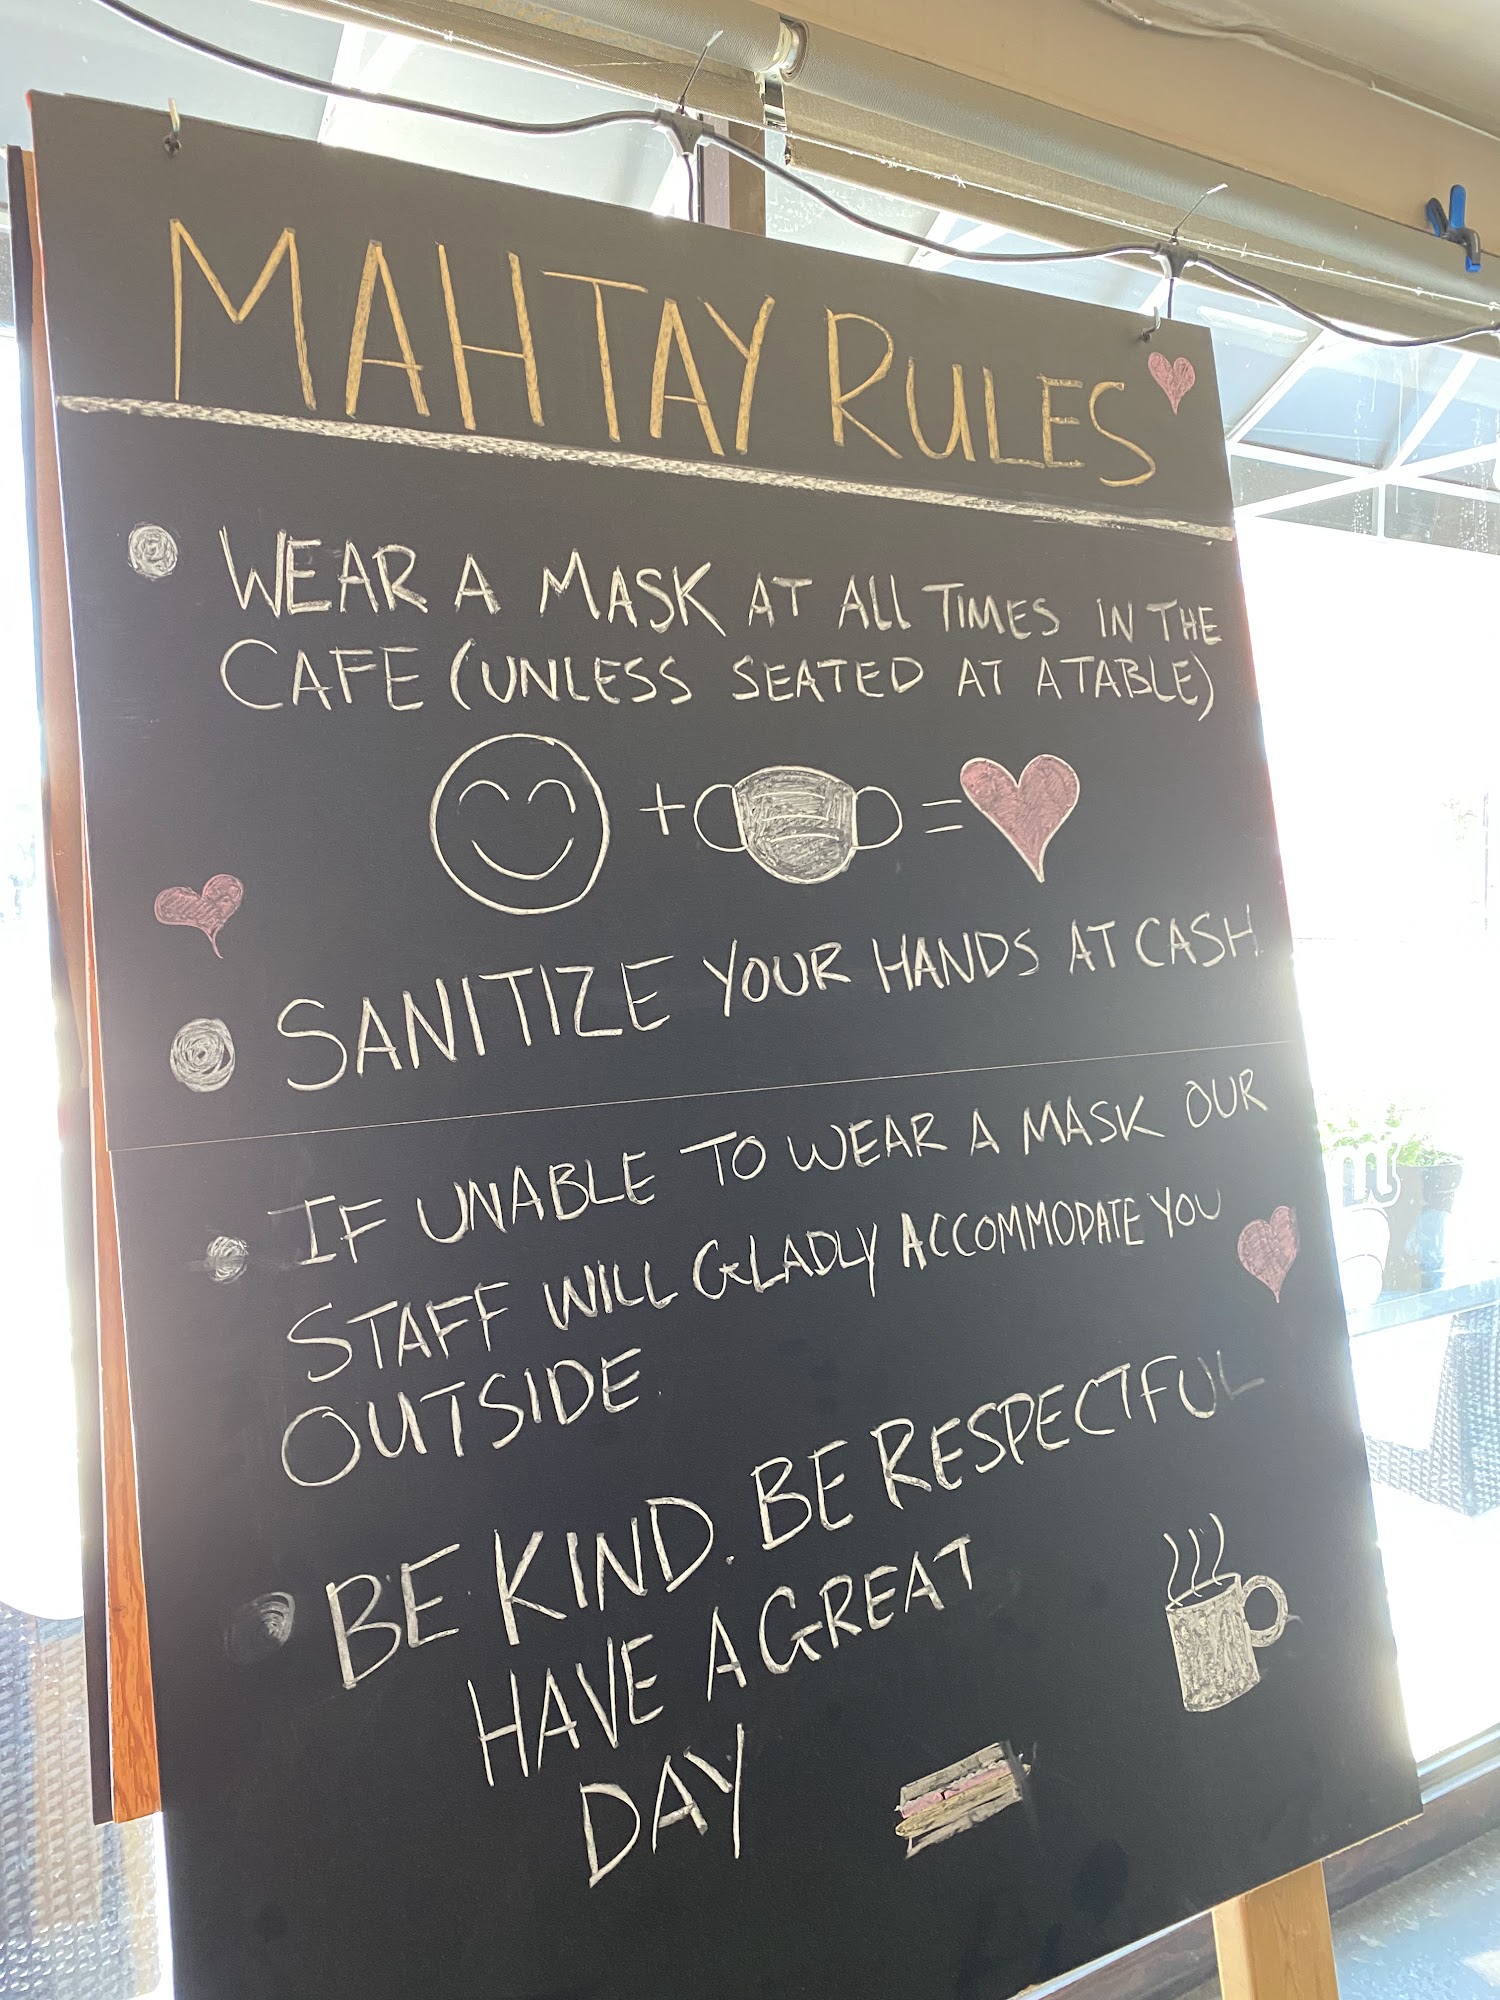 MAHTAY RULES
WEAR A MASK AT ALL TIMES IN THE
CAFE (UNLESS SEATED AT A TABLE)
+ =
SANITIZE YOUR HANDS AT CASH.
IF UNABLE TO WEAR A MASK OUR
STAFF WILL GLADLY ACCOMMODATE YOU
OUTSIDE.
BE KIND. BE RESPECTFUL
HAVE A GREAT
DAY
m